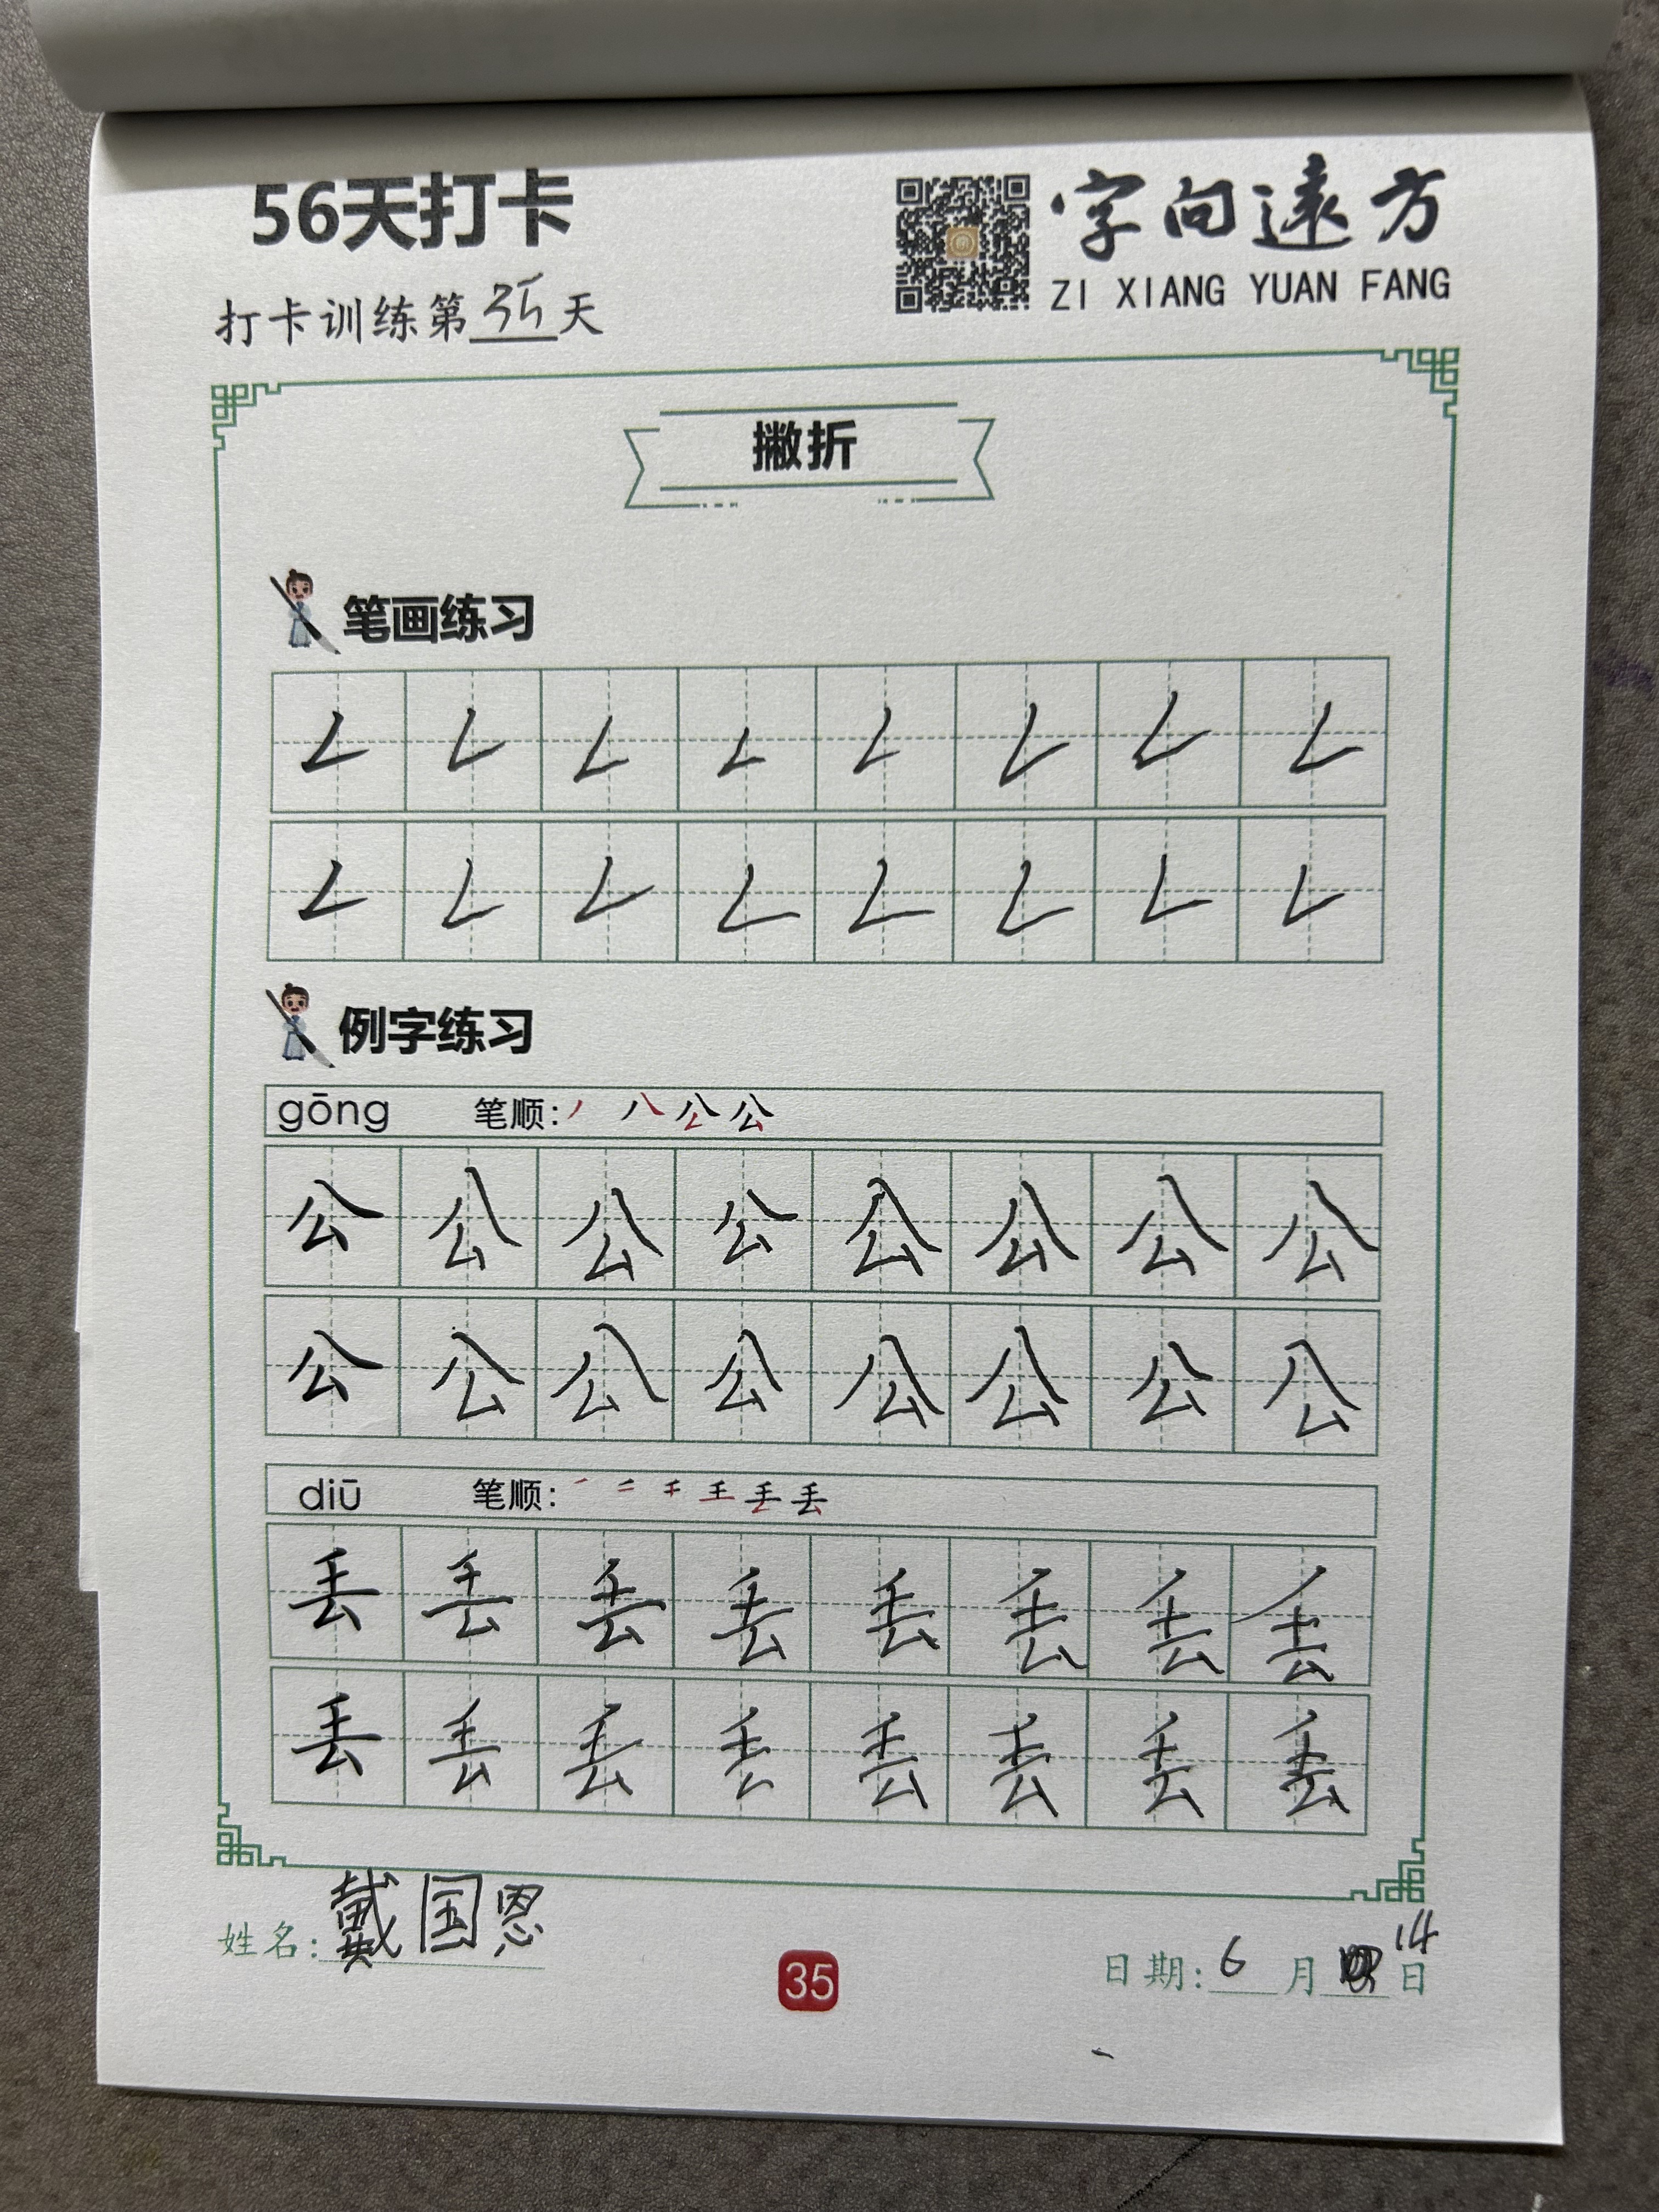 56天打卡
字向遠方
ZI XIANG YUAN FANG
打卡训练第35天
撇折
笔画练习
例字练习
gōng 笔顺: 公
公 公 公 公 公 公 公 公
公 公 公 公 公 公 公 公
diū 笔顺: 丢
丢 丢 丢 丢 丢 丢 丢 丢
丢 丢 丢 丢 丢 丢 丢 丢
姓名: 戴国恩
35
日期: 6月14日